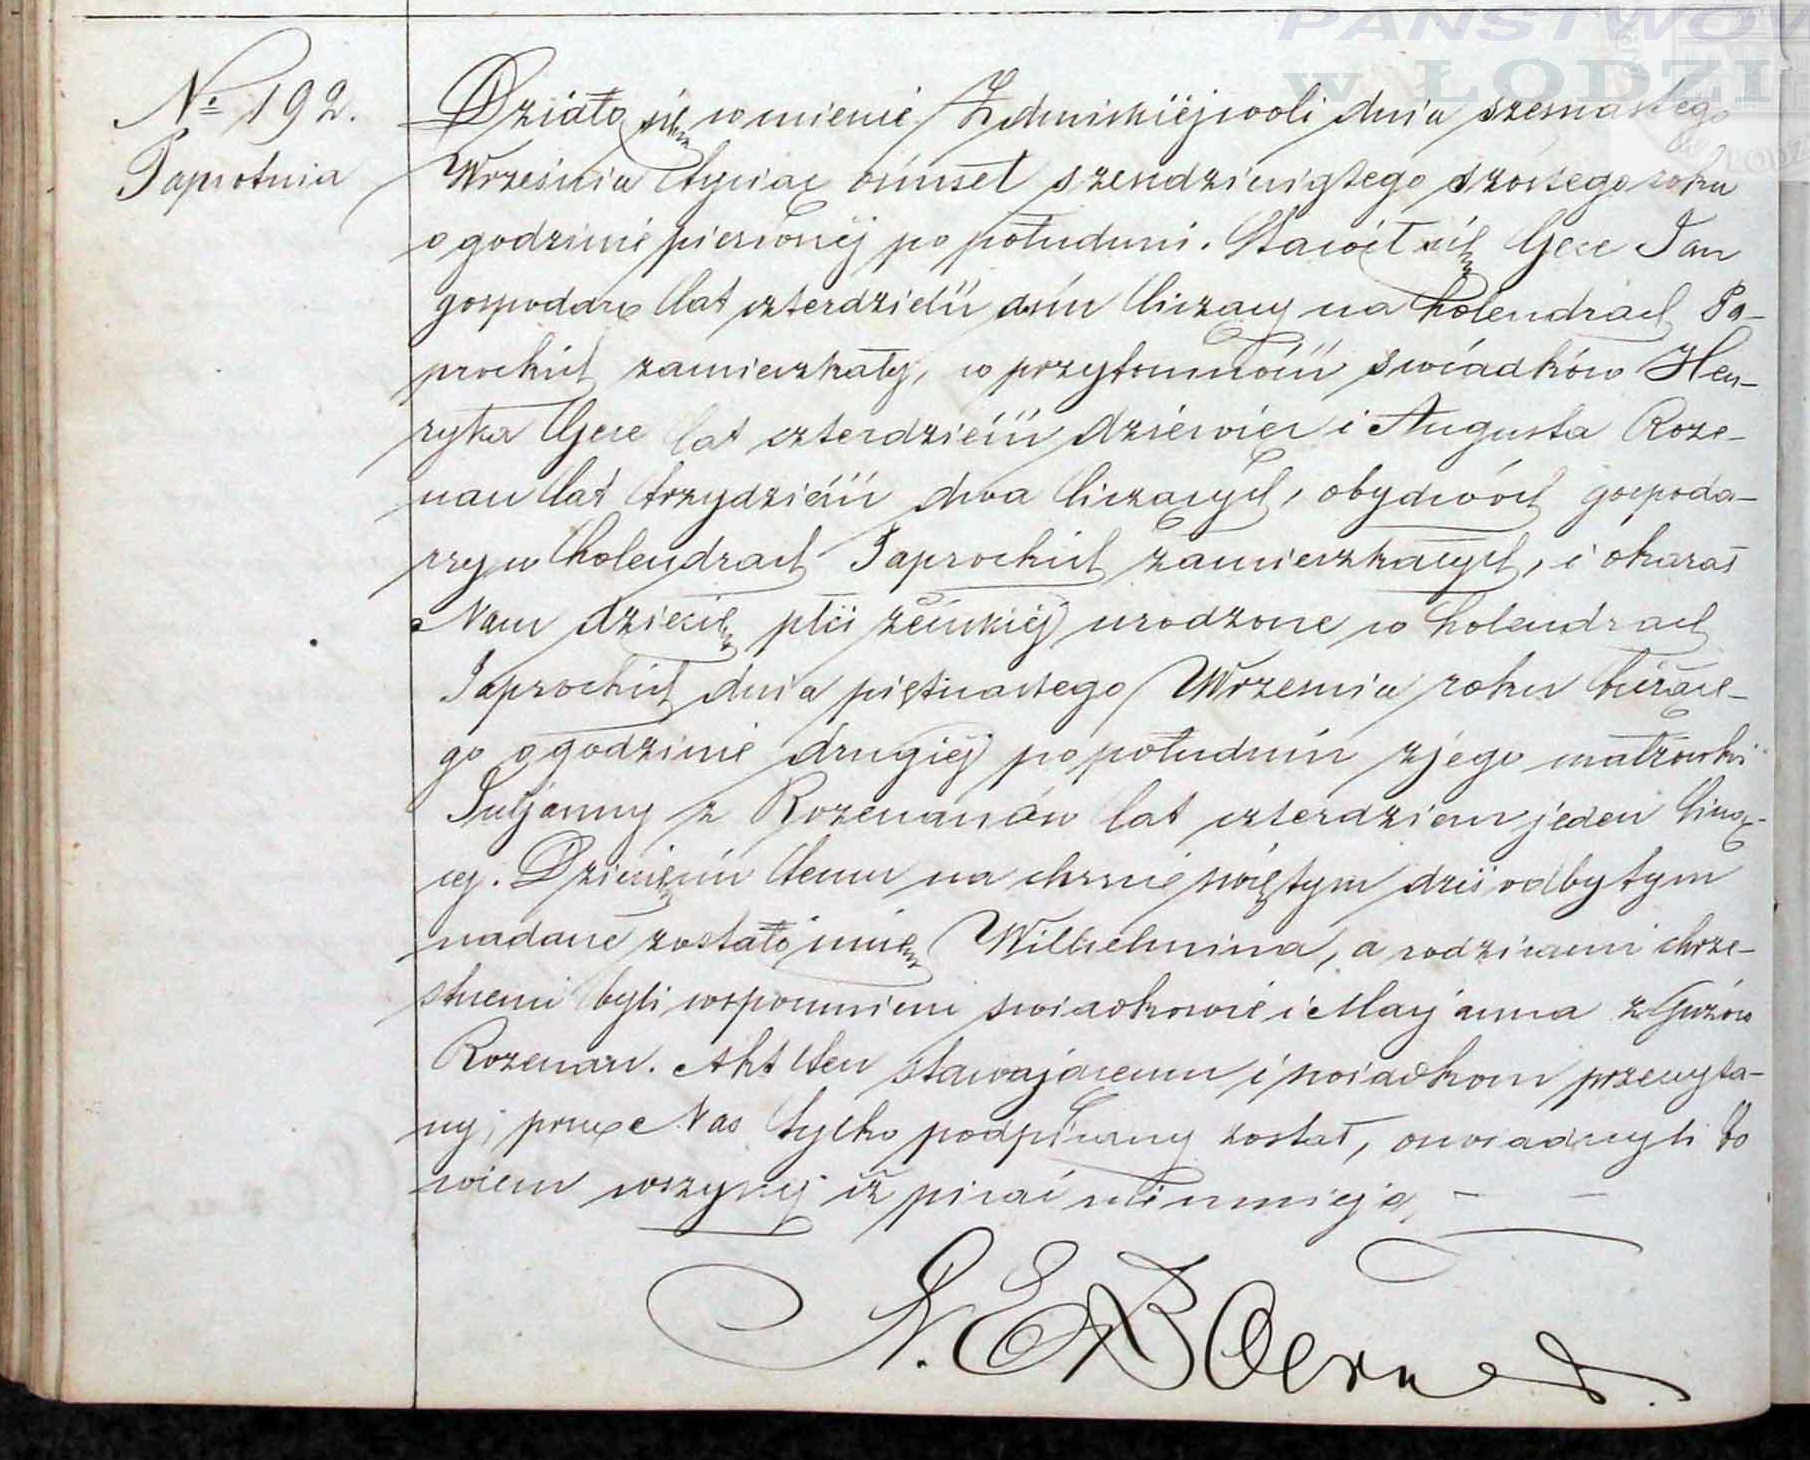 PAŃSTWOW
w ŁODZI
№ 192.
Paprotnia
Działo się w mieście Zduńskiéjwoli dnia szesnastego
Września tysiąc ośmset szesdziesiątego szóstego roku
o godzinie pierwszéj po południu. Stawił się Gece Jan
gospodarz lat czterdzieści ośm liczący na holendrach Pa-
prockich zamieszkały, w przytomności świadków Hen-
ryka Gece lat czterdzieści dziewięć i Augusta Roze-
nau lat trzydzieści dwa liczących, obydwóch gospoda-
rzy w holendrach Paprockich zamieszkałych, i okazał
Nam dziecię płci żeńskiéj urodzone w holendrach
Paprockich dnia piętnastego Września roku bieżące-
go o godzinie drugiéj po południu z jego małżonki
Juljanny z Rozenauów lat czterdzieści jeden liczą-
cej. Dziecięciu temu na chrzcie świętym dziś odbytym
nadane zostało imię Wilhelmina, a rodzicami chrze-
stnemi byli wspomnieni świadkowie i Maryanna z
Rozenau. Akt ten stawającemu i świadkom przeczyta-
ny, przez Nas tylko podpisany został, oświadczyli bo
wiem wszyscy iż pisać nieumieją, — —